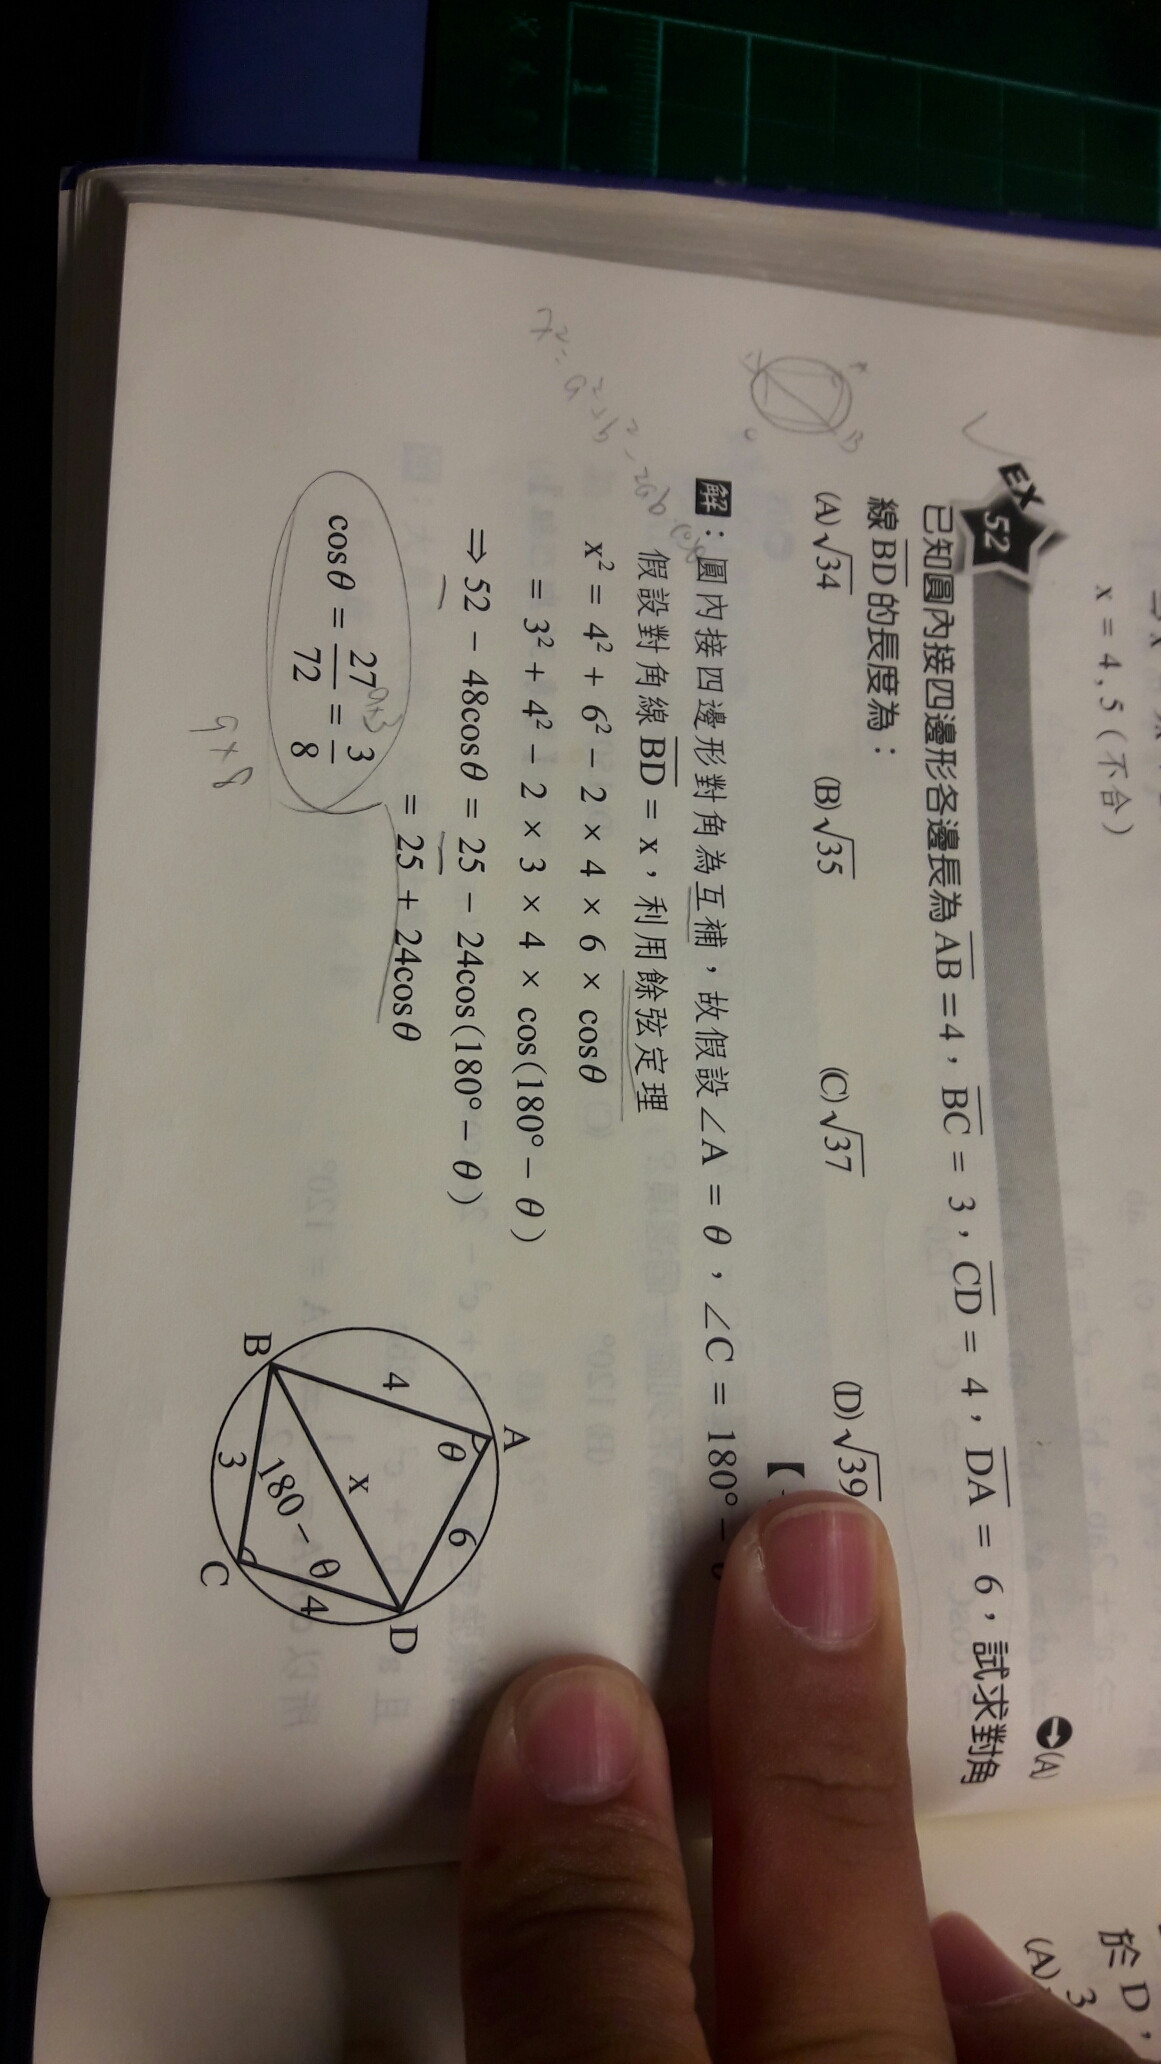 x = 4 , 5 ( 不合 )
➔(A)
EX 52
已知圓內接四邊形各邊長為 A̅B̅ = 4，B̅C̅ = 3，C̅D̅ = 4，D̅A̅ = 6，試求對角
線 B̅D̅ 的長度為：
(A)√34 (B)√35 (C)√37 (D)√39
【
解：圓內接四邊形對角為互補，故假設 ∠A = θ，∠C = 180° −
假設對角線 B̅D̅ = x，利用餘弦定理
x² = 4² + 6² − 2 × 4 × 6 × cosθ
= 3² + 4² − 2 × 3 × 4 × cos(180° − θ)
⇒ 52 − 48cosθ = 25 − 24cos(180° − θ)
= 25 + 24cosθ
cosθ = 27/72 = 3/8
9×3
9×8
A
B
C
D
4
θ
6
x
3
180 − θ
4
B
於 D，
3
(A)